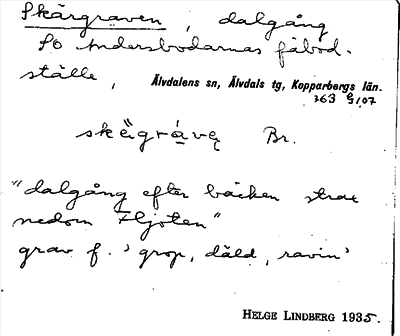 Skärgraven, dalgång
SO Andersbodarnas fäbod-
ställe,
Älvdalens sn, Älvdals tg, Kopparbergs län.
363 G/07
Br.
"dalgång efter bäcken strax
nedom Hjoten"
grav f. 'grop, däld, ravin'
HELGE LINDBERG 1935.